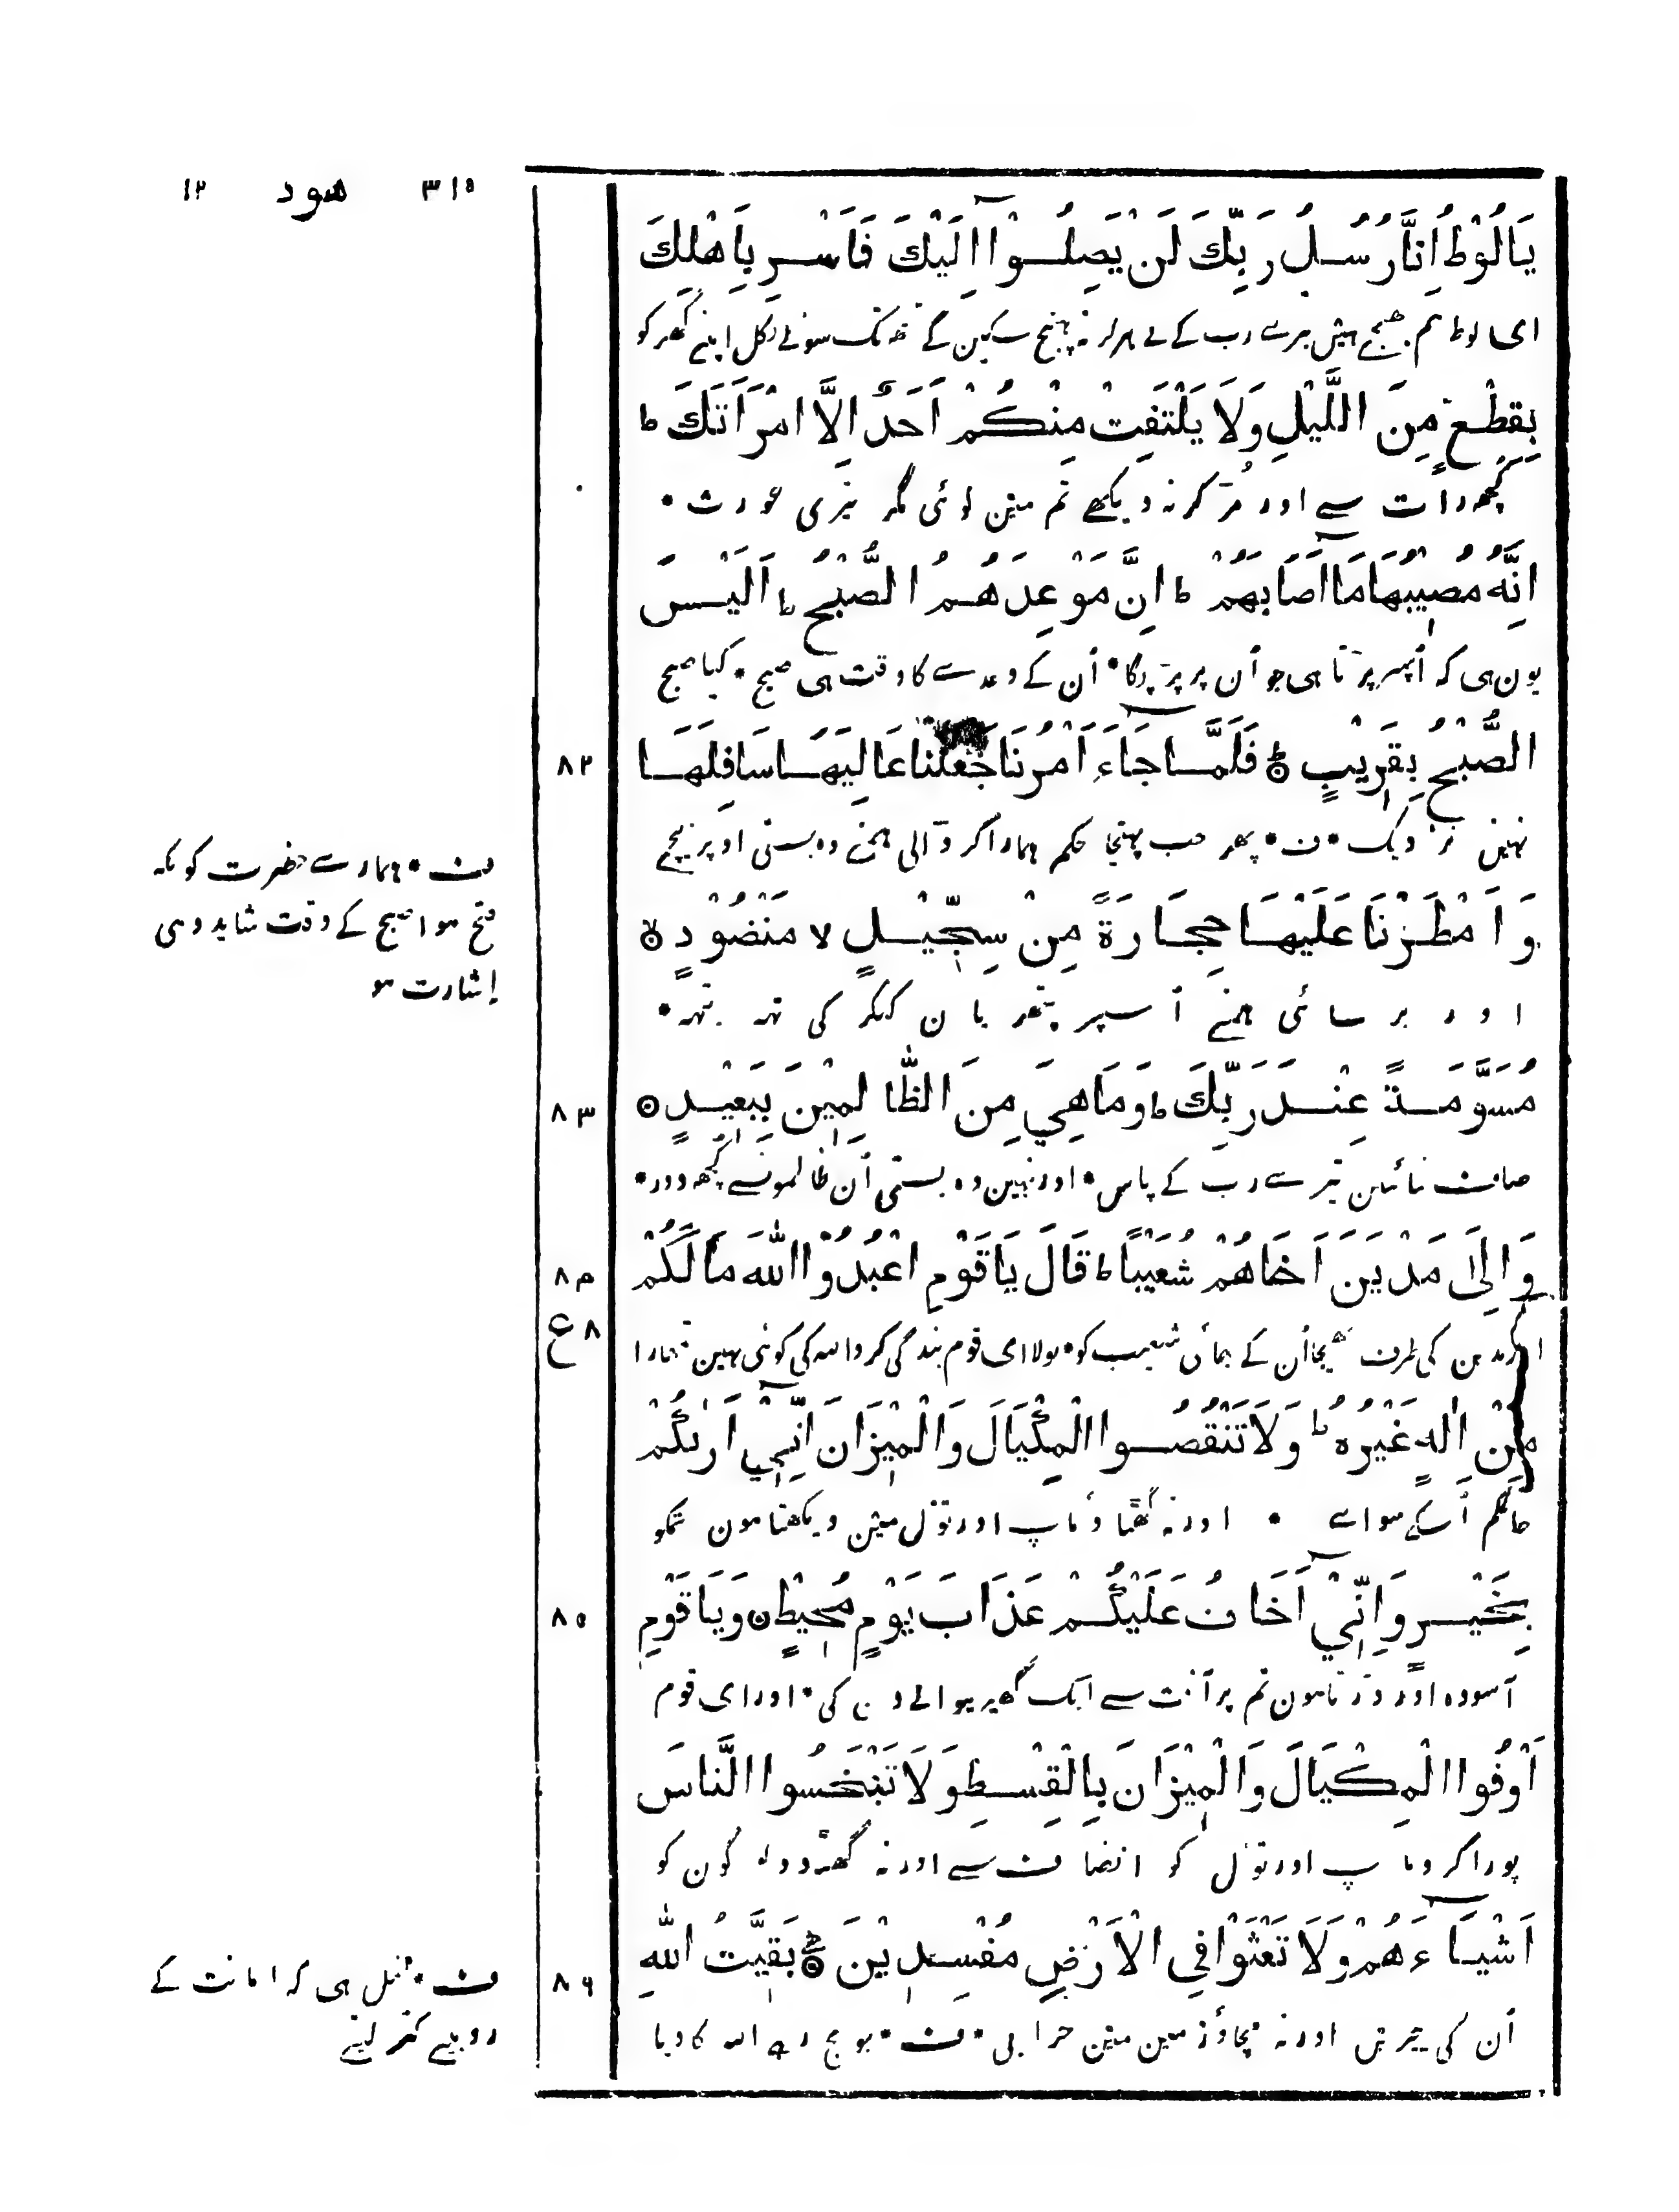 ۳۱۵ هود ۱۲
يَالُوْطُ اِنَّا رُسُلُ رَبِّكَ لَنْ يَصِلُوْٓا اِلَيْكَ فَاَسْرِ بِاَهْلِكَ
ای لوط ہم بھیجے ہیں تیرے رب کے یے ہرگز نہ پہنچ سکین گے تجھ تک سو لے نکل اپنے گھر کو
بِقِطْعٍ مِنَ اللَّيْلِ وَلَا يَلْتَفِتْ مِنْكُمْ اَحَدٌ اِلَّا امْرَاَتَكَ ط
کچھ رات سے اور مڑ کر نہ دیکھے تم مین کوئی مگر تیری عورت *
اِنَّهُ مُصِيْبُهَا مَآ اَصَابَهُمْ ط اِنَّ مَوْعِدَهُمُ الصُّبْحُ ط اَلَيْسَ
یون ہی کہ اُسپر پڑتا ہی جو اُن پر پڑیگا * اُن کے وعدے کا وقت ہی صبح * کیا صبح
الصُّبْحُ بِقَرِيْبٍ فَلَمَّا جَآءَ اَمْرُنَا جَعَلْنَا عَالِيَهَا سَافِلَهَا
۸۲
نہین نزدیک * ف * پھر جب پہنچا حکم ہمارا کر ڈالی ہمنے وہ بستی اوپر نیچے
وَاَمْطَرْنَا عَلَيْهَا حِجَارَةً مِنْ سِجِّيْلٍ لا مَنْضُوْدٍ لا
اور برسائی ہمنے اُسپر پتھریان کنکر کی تہ بتہ *
مُسَوَّمَةً عِنْدَ رَبِّكَ ط وَمَا هِيَ مِنَ الظَّالِمِيْنَ بِبَعِيْدٍ
۸۳
صاف بنائین تیرے رب کے پاس * اور نہین وہ بستی اُن ظالمونسے کچھ دور *
وَاِلٰى مَدْيَنَ اَخَاهُمْ شُعَيْبًا ط قَالَ يَا قَوْمِ اعْبُدُوْا اللّٰهَ مَا لَكُمْ
۸۴
۸ ع
اور مدین کی طرف بھیجا اُن کے بھائی شعیب کو * بولا ای قوم بندگی کرو اللہ کی کوئی نہین تمہارا
مِنْ اِلٰهٍ غَيْرُهُ ط وَلَا تَنْقُصُوا الْمِكْيَالَ وَالْمِيْزَانَ اِنِّيْٓ اَرٰىكُمْ
حاکم اُسکے سوائے * اور نہ گھٹاؤ ماپ اور تول مین دیکھتا ہون تمکو
بِخَيْرٍ وَاِنِّيْٓ اَخَافُ عَلَيْكُمْ عَذَابَ يَوْمٍ مُحِيْطٍ وَيَا قَوْمِ
۸۵
آسودہ اور ڈرتا ہون تم پر آفت سے ایک گھیریوالے دن کی * اور ای قوم
اَوْفُوا الْمِكْيَالَ وَالْمِيْزَانَ بِالْقِسْطِ وَلَا تَبْخَسُوا النَّاسَ
پورا کرو ماپ اور تول کو انصاف سے اور نہ گھٹا دو لوگون کو
اَشْيَآءَهُمْ وَلَا تَعْثَوْا فِي الْاَرْضِ مُفْسِدِيْنَ بَقِيَّتُ اللّٰهِ
۸۶
اُن کی چیزین اور نہ مچاؤ زمین مین خرابی * ف * جو بچ رہے اللہ کا دیا
ف * ہمارے حضرت کو مکہ
فتح ہوا صبح کے وقت شاید وہی
اِشارت ہو
ف * نقل ہی کہ امانت کے
روپیے کتر لیتے